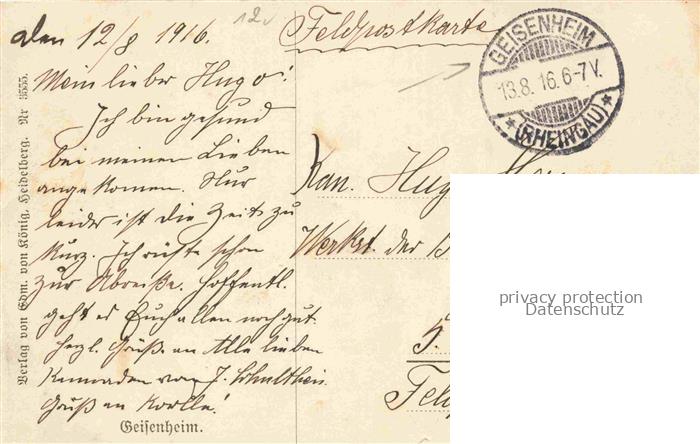 den 12/8 1916.
Mein lieber Hugo!
Ich bin gesund
bei meinen Lieben
angekomen. Nur
leider ist die Zeit zu
kurz. Ich rüste schon
zur Abreiße. Hoffentl.
geht es Euch allen noch gut.
herzl. Grüße an Alle lieben
Kameraden von J. Schultheis
Gruß an
Geisenheim.
Verlag von Edm. von König, Heidelberg. Nr 3555.
12
Feldpostkarte
GEISENHEIM
13.8.16.6-7V.
* (RHEINGAU) *
Kan. Hugo
Werkst. der
5.
Feld
privacy protection
Datenschutz